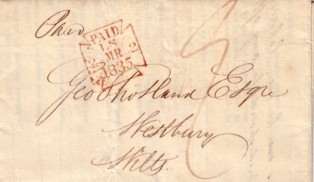 Paid
PAID
LS
MR
1835
Geo Shotland Esqre
Westbury
Wilts.